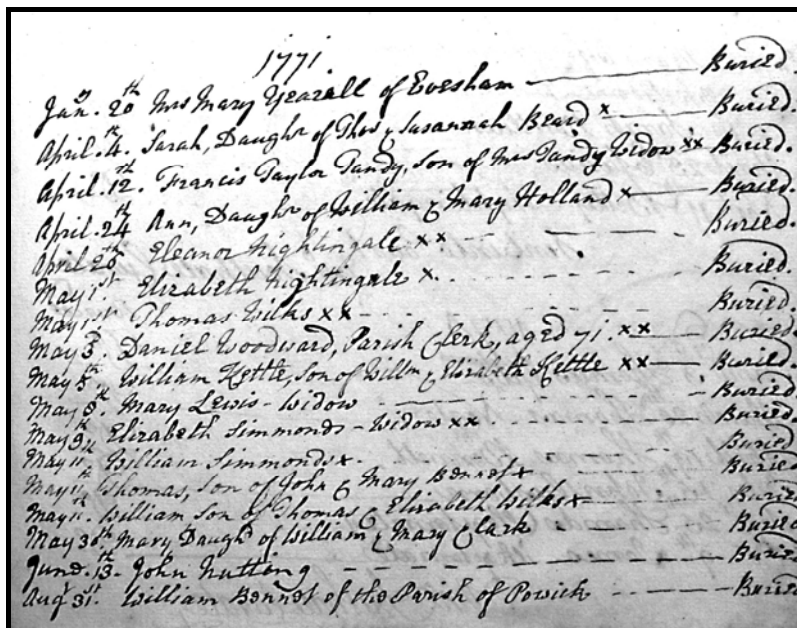 1771.
Jany. 20th Mrs Mary Yearall of Evesham Buried.
April. 4th. Sarah, Daughr of Thos & Susannah Beard x Buried.
April. 12. Francis Taylor Tandy, Son of Mrs Tandy Widow xx Buried.
April. 24th Ann, Daughr of William & Mary Holland x Buried.
April 28th Eleanor Nightingale xx Buried.
May 1st. Elizabeth Nightingale x Buried.
May 1st. Thomas Wilks xx Buried.
May 3d. Daniel Woodward, Parish Clerk, aged 71. xx Buried.
May 5th. William Kettle, Son of Willm & Elizabeth Kettle xx Buried.
May 8th. Mary Lewis - Widow Buried.
May 9th. Elizabeth Simmonds - Widow xx Buried.
May 11th. William Simmonds x Buried
May 11th Thomas, Son of John & Mary Bennet x Buried
May 11th. William Son of Thomas & Elizabeth Wilks x Buried
May 30th Mary Daughr of William & Mary Clark Buried
June. 13th. John Nutting Buried
Augt 31st. William Bennet of the Parish of Powick Buried